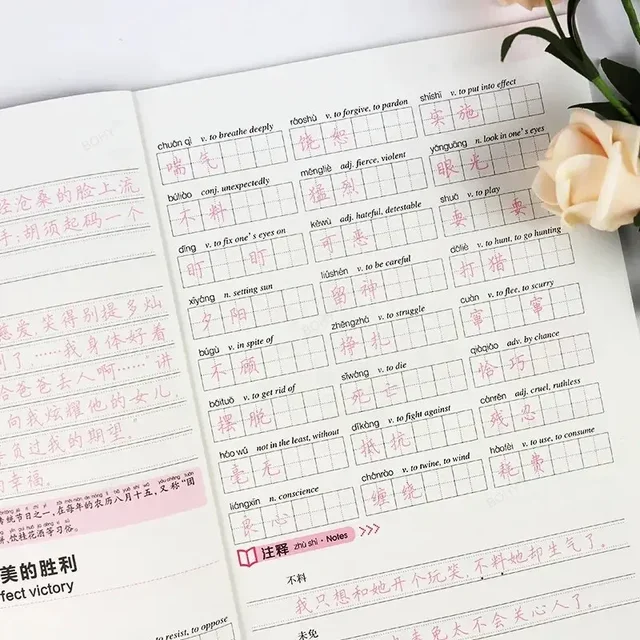 经沧桑的脸上流
手,胡须起码一个
慈爱,笑得别提多灿
到了……我身体好着
给爸爸去人啊……"讲
向我炫耀他的女儿,
辜负过我的期望。"
的幸福。
传统节日之一,在每年的农历八月十五,又称"团
饮桂花酒等习俗。
美的胜利
fect victory
to resist, to oppose
chuǎn qì v. to breathe deeply
喘气
ráoshù v. to forgive, to pardon
饶恕
shíshī v. to put into effect
实施
búliào conj. unexpectedly
不料
měngliè adj. fierce, violent
猛烈
yǎnguāng n. look in one's eyes
眼光
dīng v. to fix one's eyes on
盯 盯
kěwù adj. hateful, detestable
可恶
shuǎ v. to play
耍 耍
xīyáng n. setting sun
夕阳
liúshén v. to be careful
留神
dǎliè v. to hunt, to go hunting
打猎
búgù v. in spite of
不顾
zhēngzhá v. to struggle
挣扎
cuàn v. to flee, to scurry
窜 窜
bǎituō v. to get rid of
摆脱
sǐwáng v. to die
死亡
qiàqiǎo adv. by chance
恰巧
háo wú not in the least, without
毫无
dǐkàng v. to fight against
抵抗
cánrěn adj. cruel, ruthless
残忍
liángxīn n. conscience
良心
chánrào v. to twine, to wind
缠绕
hàofèi v. to use, to consume
耗费
注释 zhù shì · Notes
不料
我只想和她开个玩笑,不料她却生气了。
未免
未免太不会关心人了。